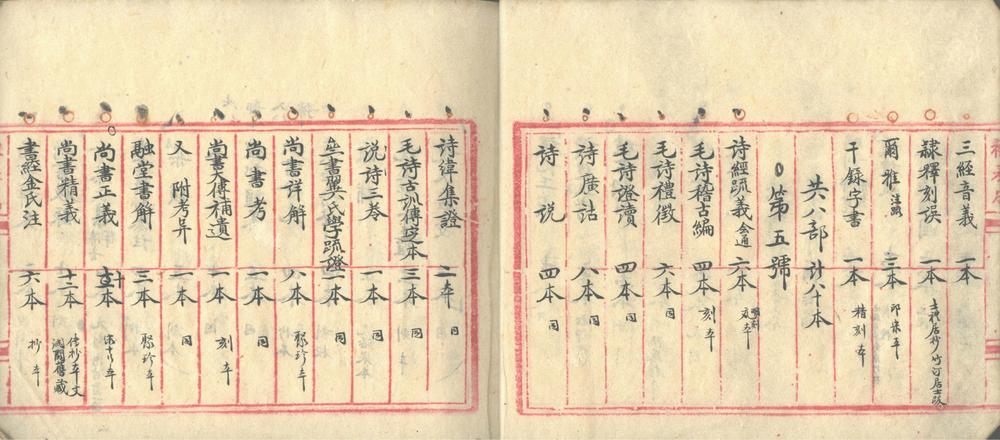 三經音義 一本
隸釋刻誤 一本 士禮居抄 竹汀居士跋
爾雅 注疏 三本 印宋本
干錄字書 一本 精刻本
共八部 計八十本
第五號
詩經疏義會通 六本 明刻
毛詩稽古編 四本 刻本
毛詩禮徵 六本 同
毛詩證讀 四本 同
詩廣詁 八本 同
詩說 四本 同
詩緯集證 二本 同
毛詩古訓傳定本 三本 刻本
說詩三卷 一本 同
齊詩翼氏學疏證 一本 同
尚書詳解 八本 聚珍本
尚書考 一本 同
尚書大傳補遺 一本 刻本
又 附考异 一本 同
融堂書解 三本 聚珍本
尚書正義 十本 宋十行本
尚書精義 十二本 傳抄本文瀾閣舊藏
書經金氏注 六本 抄本